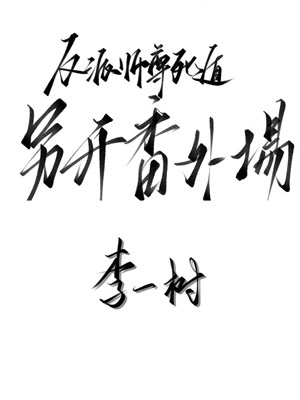 反派师尊死遁
另开番外場
李一树